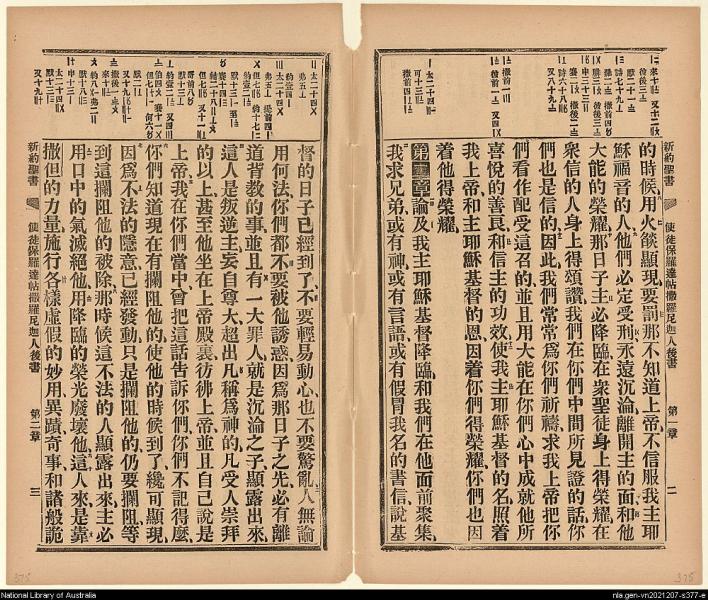 新約聖書
使徒保羅達帖撒羅尼迦人後書
第一章
二
的時候、用火燄顯現、要罰那不知道上帝、不信服我主耶
穌福音的人、他們必定受刑、永遠沉淪、離開主的面、和他
大能的榮耀、那日子主必降臨、在衆聖徒身上得榮耀、在
衆信的人身上得頌讚、我們在你們中間所見證的話、你
們也是信的、因此我們常常爲你們祈禱、求我上帝把你
們看作配受這召的、並且用大能在你們心中成就他所
喜悅的善良、和信主的功效、使我主耶穌基督的名、照着
我上帝、和主耶穌基督的恩、因着你們得榮耀、你們也因
着他得榮耀、
第二章論及我主耶穌基督降臨、和我們在他面前聚集、
我求兄弟、或有神、或有言語、或有假冒我名的書信、說基
督的日子已經到了、不要輕易動心、也不要驚亂、人無論
用何法你們都不要被他誘惑、因爲那日子之先、必有離
道背教的事、並且有一大罪人、就是沉淪之子、顯露出來、
這人是叛逆主、妄自尊大、超出凡稱爲神的、凡受人崇拜
的以上、甚至他坐在上帝殿裏、彷彿上帝、並且自己說是
上帝、我在你們當中、曾把這話告訴你們、你們不記得麼、
你們知道現在有攔阻他的、使他的時候到了、纔可顯現、
因爲不法的隱意、已經發動、只是攔阻他的、仍要攔阻、等
到這攔阻他的被除、那時候這不法的人顯露出來、主必
用口中的氣滅絕他、用降臨的榮光廢壞他、這人來、是靠
撒但的力量、施行各樣虛假的妙用、異蹟奇事、和諸般詭
新約聖書
使徒保羅達帖撒羅尼迦人後書
第二章
三
375
375
National Library of Australia
nla.gen-vn2021207-s377-e